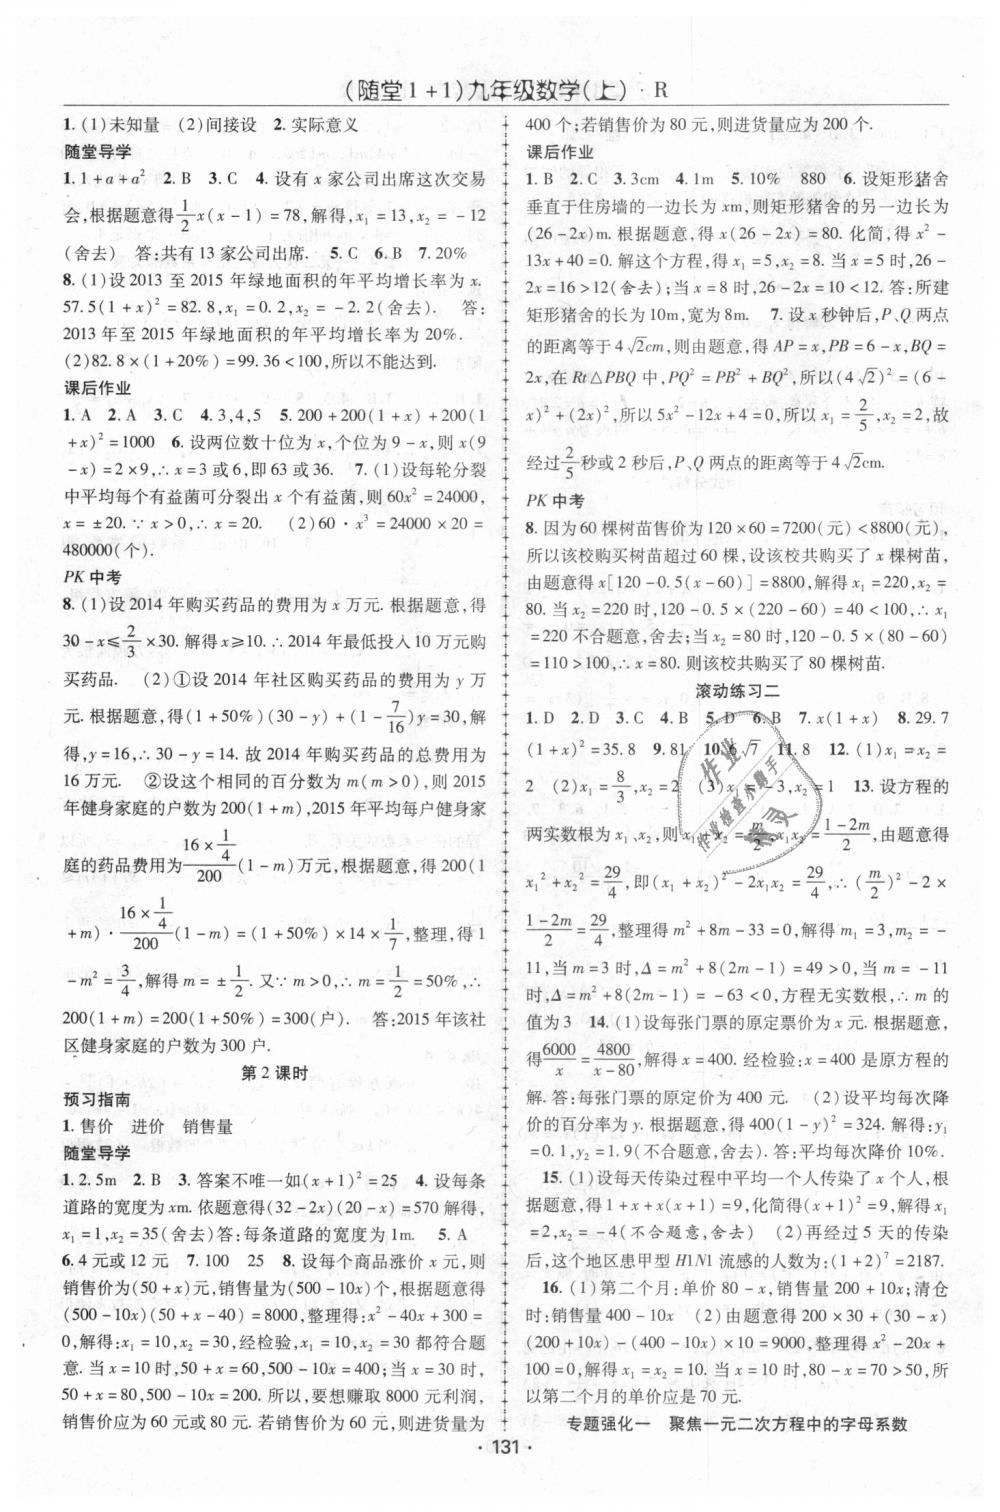 (随堂1+1)九年级数学(上)·R
1. (1)未知量 (2)间接设 2. 实际意义
随堂导学
1. 1+a+a² 2. B 3. C 4. 设有 x 家公司出席这次交易
会,根据题意得1/2x(x-1)=78,解得,x₁=13,x₂=-12
(舍去) 答:共有 13 家公司出席. 5. C 6. B 7. 20%
8. (1)设 2013 至 2015 年绿地面积的年平均增长率为 x.
57.5(1+x)²=82.8,x₁=0.2,x₂=-2.2(舍去). 答:
2013 年至 2015 年绿地面积的年平均增长率为 20%.
(2)82.8×(1+20%)=99.36<100,所以不能达到.
课后作业
1. A 2. A 3. C 4. 3,4,5 5. 200+200(1+x)+200(1
+x)²=1000 6. 设两位数十位为 x,个位为 9-x,则 x(9
-x)=2×9,∴x=3 或 6,即 63 或 36. 7. (1)设每轮分裂
中平均每个有益菌可分裂出 x 个有益菌,则 60x²=24000,
x=±20. ∵x>0,∴x=20. (2)60·x³=24000×20=
480000(个).
PK 中考
8. (1)设 2014 年购买药品的费用为 x 万元. 根据题意,得
30-x≤2/3×30. 解得 x≥10. ∴2014 年最低投入 10 万元购
买药品. (2)①设 2014 年社区购买药品的费用为 y 万
元. 根据题意,得(1+50%)(30-y)+(1-7/16)y=30,解
得,y=16,∴30-y=14. 故 2014 年购买药品的总费用为
16 万元. ②设这个相同的百分数为 m(m>0),则 2015
年健身家庭的户数为 200(1+m),2015 年平均每户健身家
庭的药品费用为(16×1/4)/200(1-m)万元,根据题意,得 200(1
+m)·(16×1/4)/200(1-m)=(1+50%)×14×1/7,整理,得 1
-m²=3/4,解得 m=±1/2. 又∵m>0,∴m=1/2=50%,∴
200(1+m)=200(1+50%)=300(户). 答:2015 年该社
区健身家庭的户数为 300 户.
第 2 课时
预习指南
1. 售价 进价 销售量
随堂导学
1. 2.5m 2. B 3. 答案不唯一如(x+1)²=25 4. 设每条
道路的宽度为 xm. 依题意得(32-2x)(20-x)=570,解得,
x₁=1,x₂=35(舍去)答:每条道路的宽度为 1m. 5. A
6. 4 元或 12 元 7. 100 25 8. 设每个商品涨价 x 元,则
销售价为(50+x)元,销售量为(500-10x)个,根据题意得
(500-10x)(50+x-40)=8000,整理得:x²-40x+300=
0,解得:x₁=10,x₂=30,经检验,x₁=10,x₂=30 都符合题
意. 当 x=10 时,50+x=60,500-10x=400;当 x=30 时,
50+x=80,500-10x=200. 所以,要想赚取 8000 元利润,
销售价应为 60 元或 80 元. 若销售价为 60 元,则进货量为
400 个;若销售价为 80 元,则进货量应为 200 个.
课后作业
1. B 2. C 3. 3cm 4. 1m 5. 10% 880 6. 设矩形猪舍
垂直于住房墙的一边长为 xm,则矩形猪舍的另一边长为
(26-2x)m. 根据题意,得 x(26-2x)=80. 化简,得 x²-
13x+40=0. 解这个方程,得 x₁=5,x₂=8. 当 x=5 时,26-
2x=16>12(舍去);当 x=8 时,26-2x=10<12. 答:所建
矩形猪舍的长为 10m,宽为 8m. 7. 设 x 秒钟后,P、Q 两点
的距离等于 4√2cm,则由题意,得 AP=x,PB=6-x,BQ=
2x,在 Rt△PBQ 中,PQ²=PB²+BQ²,所以(4√2)²=(6-
x)²+(2x)²,所以 5x²-12x+4=0,所以 x₁=2/5,x₂=2,故
经过2/5秒或 2 秒后,P、Q 两点的距离等于 4√2cm.
PK 中考
8. 因为 60 棵树苗售价为 120×60=7200(元)<8800(元),
所以该校购买树苗超过 60 棵,设该校共购买了 x 棵树苗,
由题意得 x[120-0.5(x-60)]=8800,解得 x₁=220,x₂=
80. 当 x₂=220 时,120-0.5×(220-60)=40<100,∴x₁
=220 不合题意,舍去;当 x₂=80 时,120-0.5×(80-60)
=110>100,∴x=80. 则该校共购买了 80 棵树苗.
滚动练习二
1. D 2. D 3. C 4. B 5. D 6. B 7. x(1+x) 8. 29.7
(1+x)²=35.8 9. 81 10. 6√7 11. 8 12. (1)x₁=x₂=
2 (2)x₁=8/3,x₂=2 (3)x₁=-3,x₂=1 13. 设方程的
两实数根为 x₁、x₂,则 x₁+x₂=m/2,x₁x₂=(1-2m)/2,由题意得
x₁²+x₂²=29/4,即(x₁+x₂)²-2x₁x₂=29/4,∴(m/2)²-2×
(1-2m)/2=29/4,整理得 m²+8m-33=0,解得 m₁=3,m₂=-
11,当 m=3 时,Δ=m²+8(2m-1)=49>0,当 m=-11
时,Δ=m²+8(2m-1)=-63<0,方程无实数根,∴m 的
值为 3 14. (1)设每张门票的原定票价为 x 元. 根据题意,
得6000/x=4800/(x-80),解得 x=400. 经检验:x=400 是原方程的
解. 答:每张门票的原定价为 400 元. (2)设平均每次降
价的百分率为 y. 根据题意,得 400(1-y)²=324. 解得:y₁
=0.1,y₂=1.9(不合题意,舍去). 答:平均每次降价 10%.
15. (1)设每天传染过程中平均一个人传染了 x 个人,根
据题意,得 1+x+x(x+1)=9,化简得(x+1)²=9,解得 x₁
=2,x₂=-4(不合题意,舍去) (2)再经过 5 天的传染
后,这个地区患甲型 H1N1 流感的人数为:(1+2)⁷=2187.
16. (1)第二个月:单价 80-x,销售量 200+10x;清仓
时:销售量 400-10x (2)由题意得 200×30+(30-x)
(200+10x)-(400-10x)×10=9000,整理得 x²-20x+
100=0,解得 x₁=x₂=10,当 x=10 时,80-x=70>50,所
以第二个月的单价应是 70 元.
专题强化一 聚焦一元二次方程中的字母系数
·131·
作业
作业检查小助手
精灵